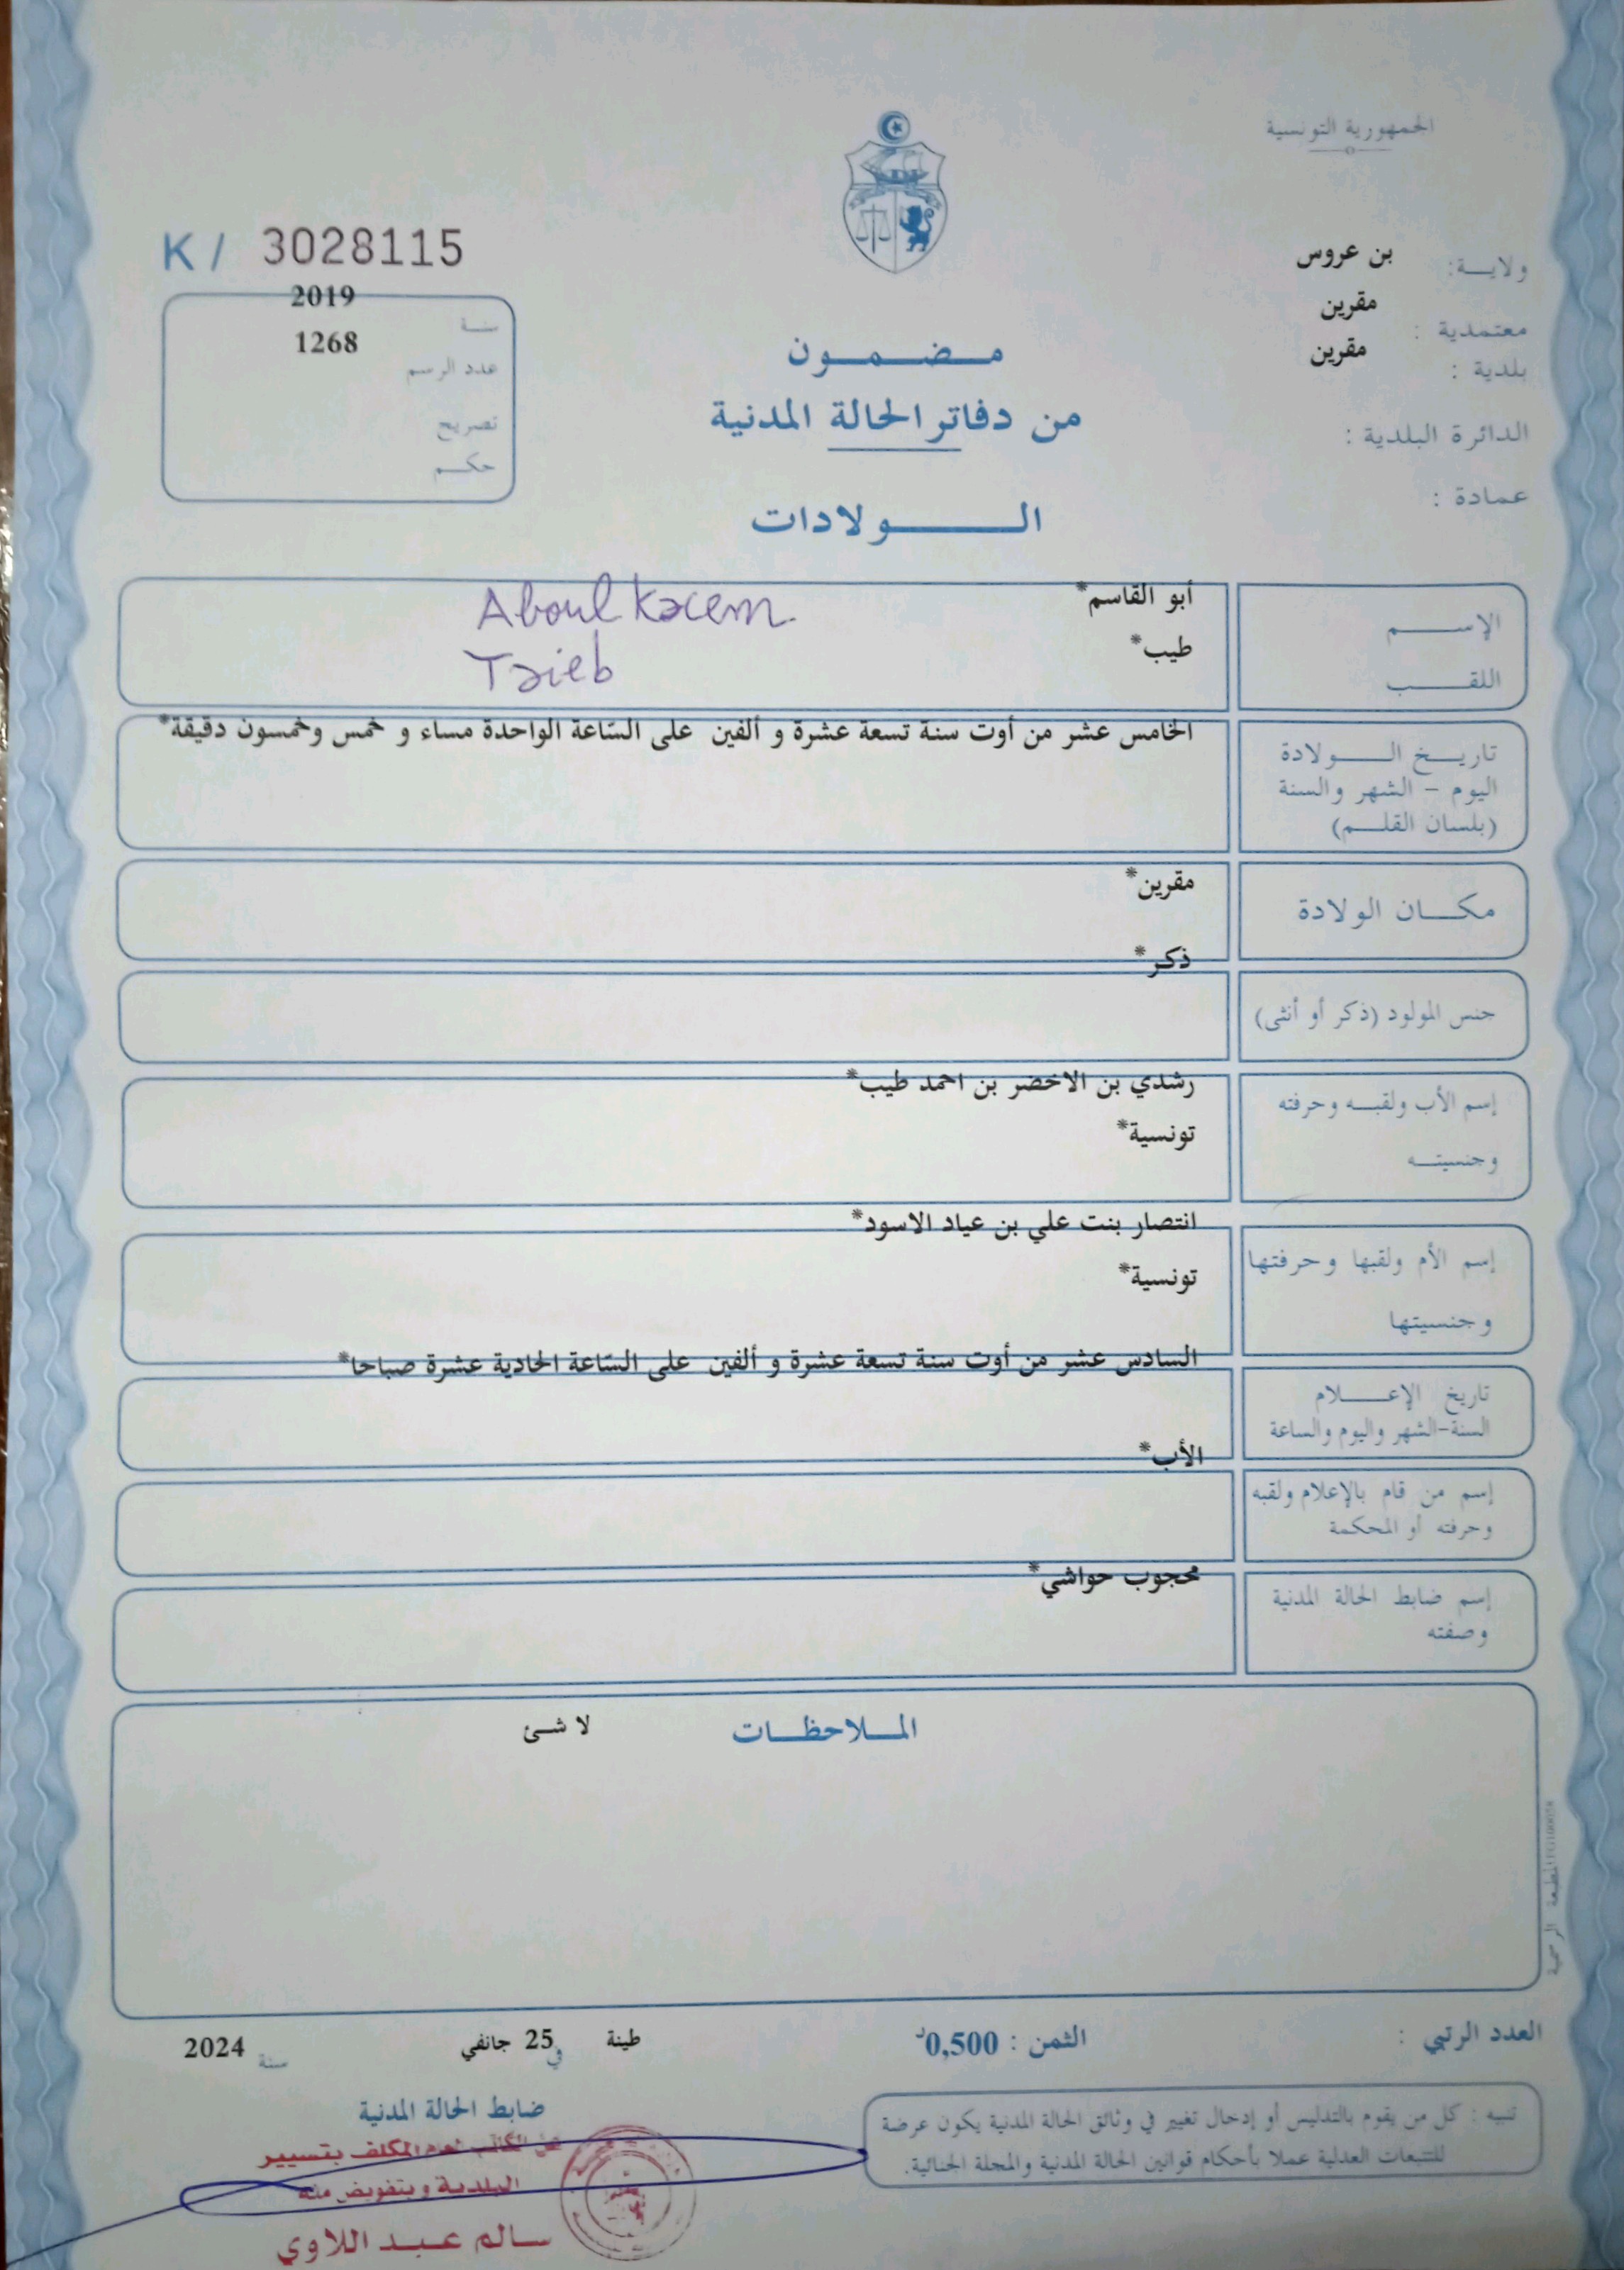 الجمهورية التونسية
ولايـــة: بن عروس
معتمدية : مقرين
بلدية : مقرين
الدائرة البلدية :
عمادة :
K / 3028115
سنة 2019
عدد الرسم 1268
تصريح
حكم
مضمون
من دفاتر الحالة المدنية
الولادات
الإسم أبو القاسم* Aboulkacem
اللقب طيب* Taieb
تاريخ الولادة
اليوم - الشهر والسنة
(بلسان القلم)
الخامس عشر من أوت سنة تسعة عشرة و ألفين على السّاعة الواحدة مساء و خمس وخمسون دقيقة*
مكان الولادة
مقرين*
جنس المولود (ذكر أو أنثى)
ذكر*
إسم الأب ولقبه وحرفته
وجنسيته
رشدي بن الاخضر بن احمد طيب*
تونسية*
إسم الأم ولقبها وحرفتها
وجنسيتها
انتصار بنت علي بن عياد الاسود*
تونسية*
تاريخ الإعلام
السنة-الشهر واليوم والساعة
السادس عشر من أوت سنة تسعة عشرة و ألفين على السّاعة الحادية عشرة صباحا*
إسم من قام بالإعلام ولقبه
وحرفته أو المحكمة
الأب*
إسم ضابط الحالة المدنية
وصفته
محجوب حواشي*
الملاحظات
لا شئ
المطبعة الرسمية
العدد الرتبي :
الثمن : 0,500د
طينة في 25 جانفي سنة 2024
تنبيه : كل من يقوم بالتدليس أو إدخال تغيير في وثائق الحالة المدنية يكون عرضة
للتتبعات العدلية عملا بأحكام قوانين الحالة المدنية والمجلة الجنائية.
ضابط الحالة المدنية
المكلف بتسيير
البلدية وبتفويض منه
سالم عبد اللاوي